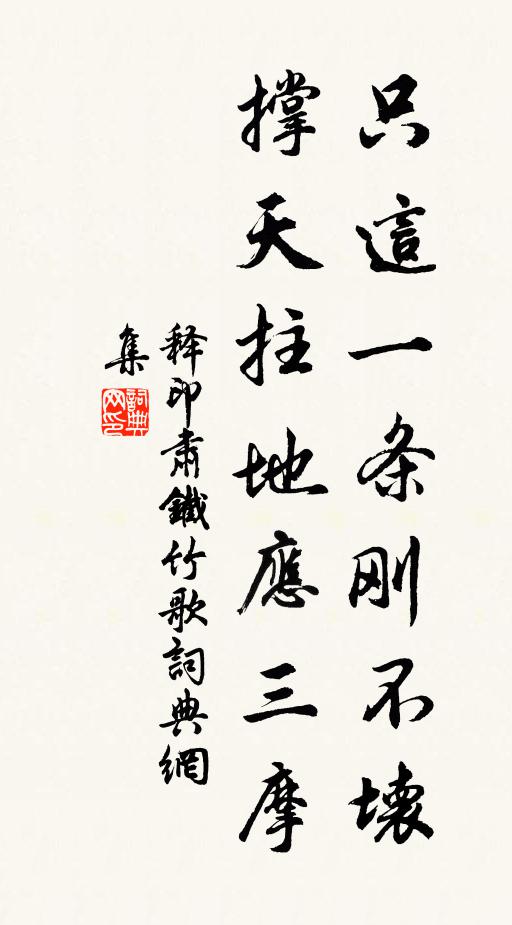 只這一条刚不壊
撑天拄地應三摩
释印肃鐵竹歌詞典網
集
詞典网印